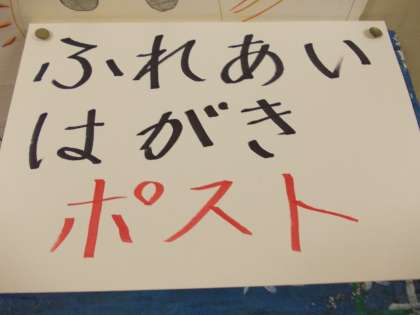 ふれあい
はがき
ポスト